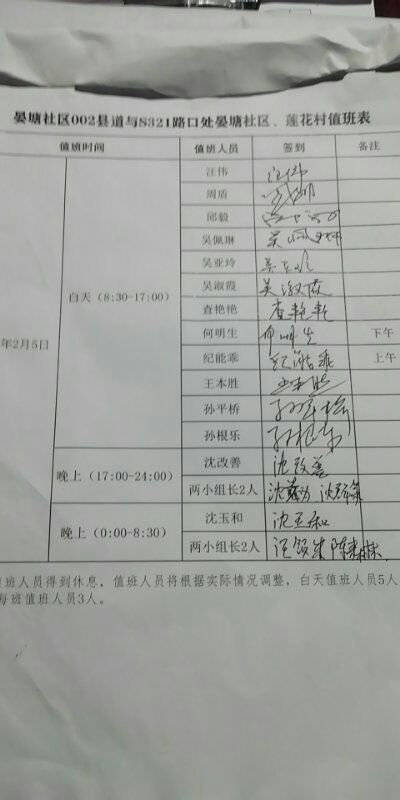 晏塘社区002县道与S321路口处晏塘社区、莲花村值班表
值班时间 值班人员 签到 备注
年2月5日
白天（8:30-17:00）
汪伟 汪伟
周盾
邱毅
吴佩琳
吴亚玲
吴淑霞 吴淑霞
查艳艳 查艳艳
何明生 何明生 下午
纪能乖 纪能乖 上午
王本胜
孙平桥
孙根乐 孙根乐
晚上（17:00-24:00）
沈改善 沈改善
两小组长2人
晚上（0:00-8:30）
沈玉和 沈玉和
两小组长2人
值班人员得到休息，值班人员将根据实际情况调整，白天值班人员5人
每班值班人员3人。